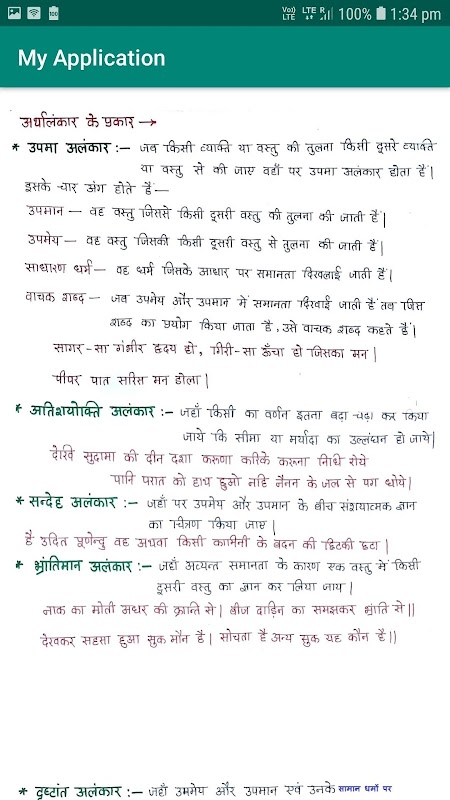 Vo) LTE LTE R 100% 1:34 pm
My Application
अर्थालंकार के प्रकार →
* उपमा अलंकार :- जब किसी व्यक्ति या वस्तु की तुलना किसी दूसरे व्यक्ति
या वस्तु से की जाए वहाँ पर उपमा अलंकार होता है|
इसके चार अंग होते हैं —
उपमान — वह वस्तु जिससे किसी दूसरी वस्तु की तुलना की जाती है|
उपमेय — वह वस्तु जिसकी किसी दूसरी वस्तु से तुलना की जाती है|
साधारण धर्म — वह धर्म जिसके आधार पर समानता दिखलाई जाती है|
वाचक शब्द — जब उपमेय और उपमान में समानता दिखाई जाती है तब जिस
शब्द का प्रयोग किया जाता है, उसे वाचक शब्द कहते है|
सागर-सा गंभीर ह्रदय हो, गिरी-सा ऊँचा हो जिसका मन|
पीपर पात सरिस मन डोला|
* अतिशयोक्ति अलंकार :- जहाँ किसी का वर्णन इतना बढ़ा-चढ़ा कर किया
जाये कि सीमा या मर्यादा का उल्लंघन हो जाये|
देखि सुदामा की दीन दशा करुणा करिके करुना निधि रोये
पानि परात को हाथ छुओ नहि नैनन के जल से पग धोये|
* सन्देह अलंकार :- जहाँ पर उपमेय और उपमान के बीच संशयात्मक ज्ञान
का चित्रण किया जाए|
है उदित पूर्णेन्दु वह अथवा किसी कामिनी के बदन की छिटकी छटा|
* भ्रांतिमान अलंकार :- जहाँ अत्यन्त समानता के कारण एक वस्तु में किसी
दूसरी वस्तु का ज्ञान कर लिया जाय|
नाक का मोती अधर की क्रान्ति से| बीज दाड़िन का समझकर भ्रांति से||
देखकर सहसा हुआ सुक मौन है| सोचता है अन्य सुक यह कौन है||
* दृष्टांत अलंकार :- जहाँ उपमेय और उपमान एवं उनके सामान धर्मो पर